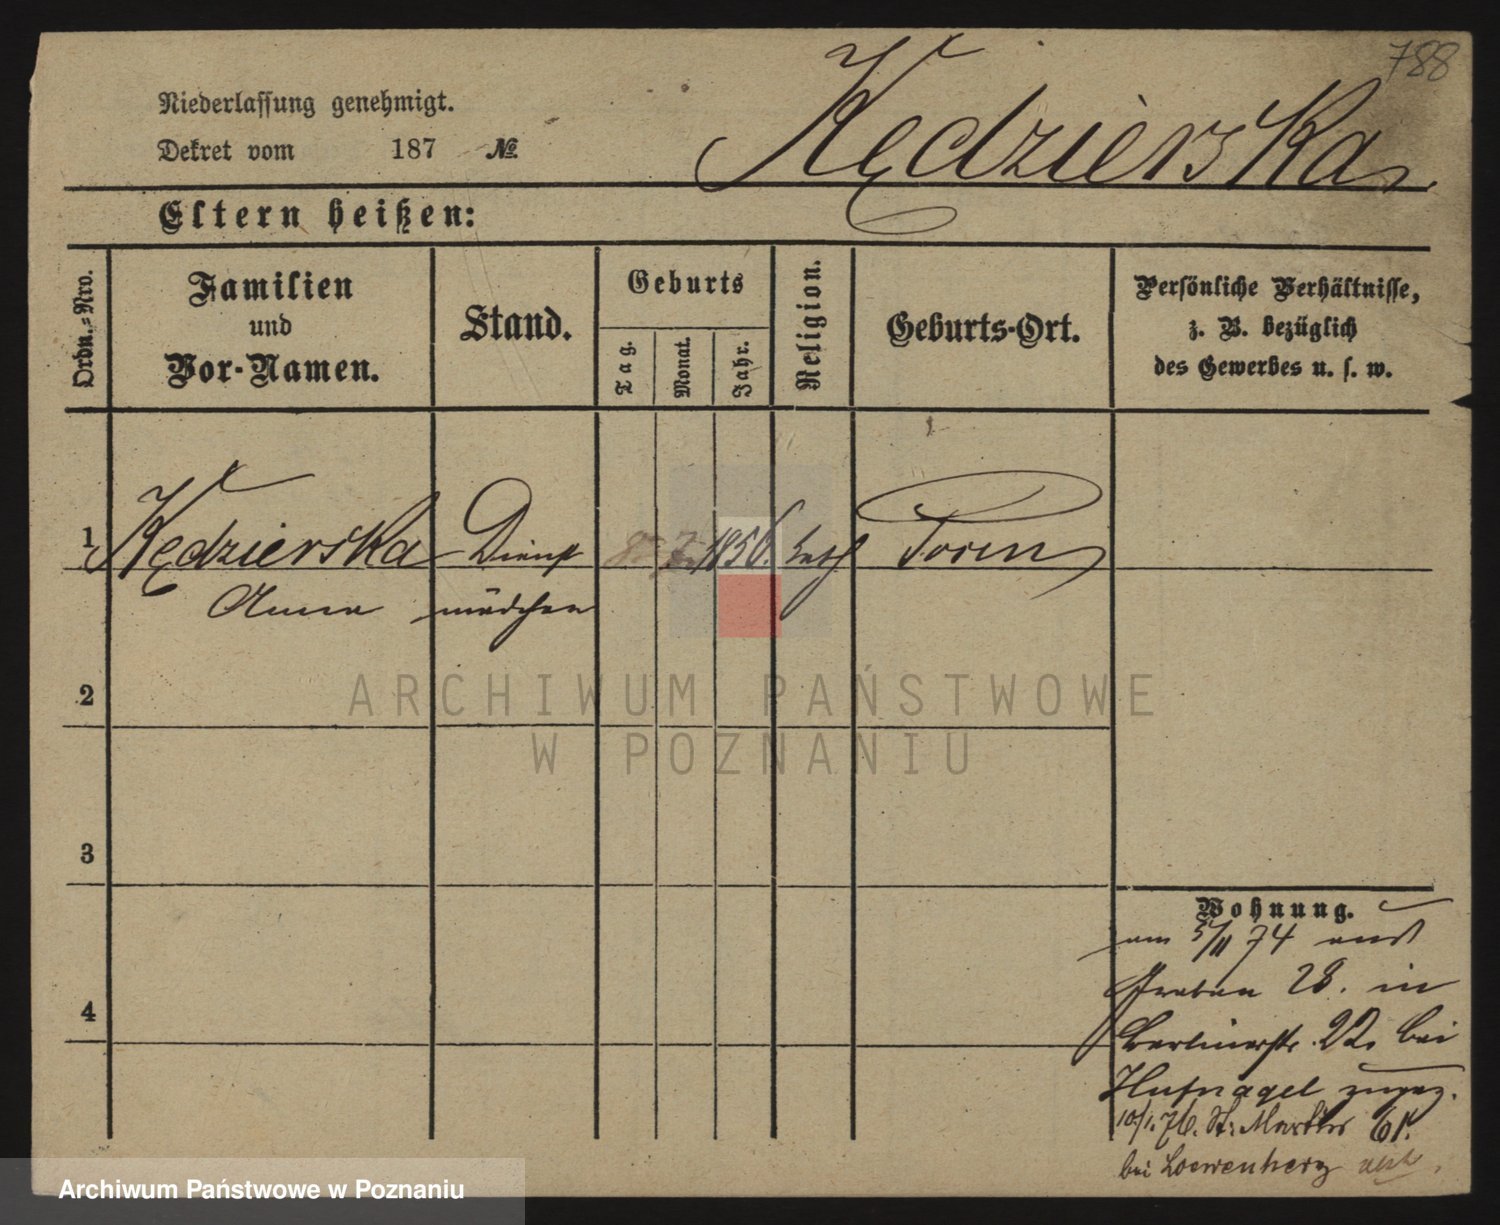 788
Niederlassung genehmigt.
Dekret vom 187 №
Kędzierska
Eltern heißen:
Ordn.-Nro.
Familien
und
Vor-Namen.
Stand.
Geburts
Tag.
Monat.
Jahr.
Religion.
Geburts-Ort.
Persönliche Verhältnisse,
z. B. bezüglich
des Gewerbes u. s. w.
1 Kędzierska Dienst 7. 1856. kath Posen
Anna mädchen
2
ARCHIWUM PAŃSTWOWE
W POZNANIU
3
Wohnung.
am 5/11 74 aus
Graben 28. in
4
Berlinerstr. 22. bei
Hufnagel zugez.
10/1. 76. St: Martin 61.
bei Loewenherz
Archiwum Państwowe w Poznaniu